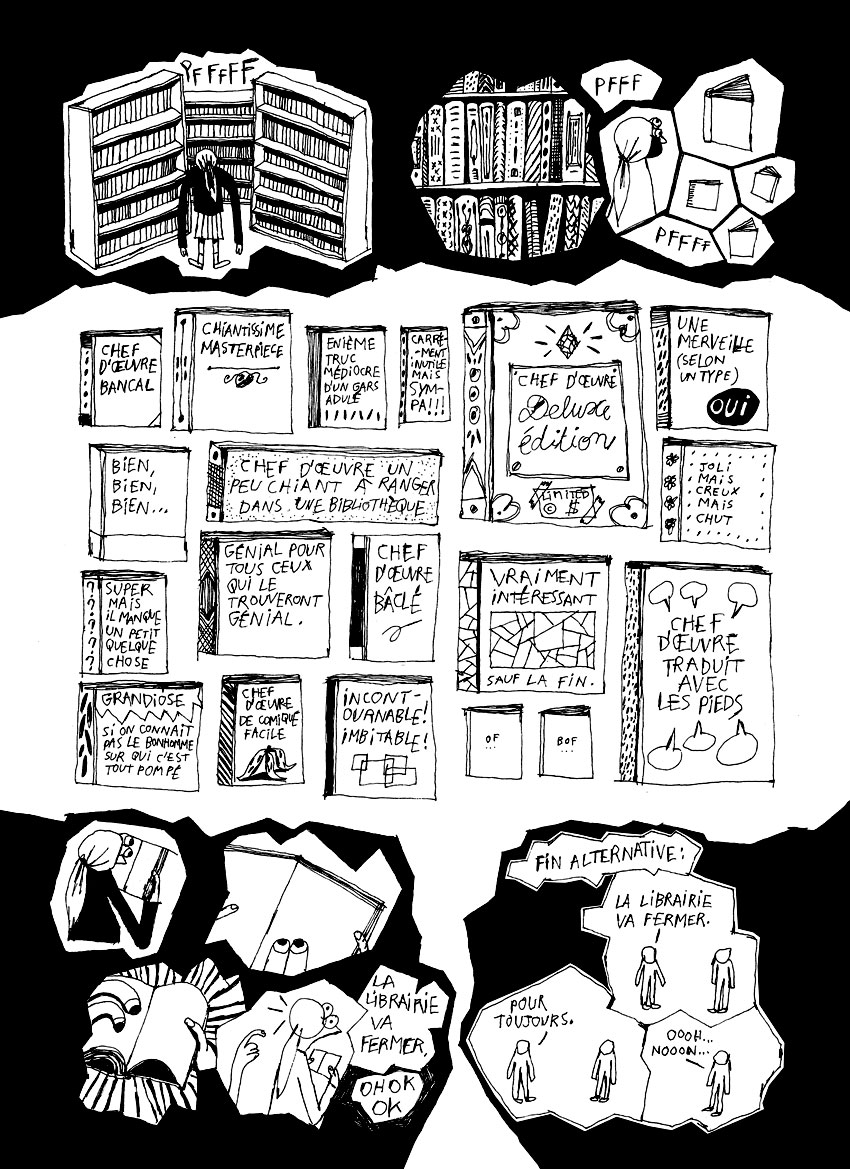 PFFFFF
PFFF
PFFFF
CHEF
D'ŒUVRE
BANCAL
CHIANTISSIME
MASTERPIECE
ENIÈME
TRUC
MÉDIOCRE
D'UN GARS
ADULÉ
CARRÉ
-MENT
INUTILE
MAIS
SYM-
PA!!!
CHEF D'ŒUVRE
Deluxe
édition
LIMITED
© $
UNE
MERVEILLE
(SELON
UN TYPE)
OUI
BIEN,
BIEN,
BIEN...
CHEF D'ŒUVRE UN
PEU CHIANT À RANGER
DANS UNE BIBLIOTHÈQUE
JOLI
MAIS
CREUX
MAIS
CHUT
SUPER
MAIS
IL MANQUE
UN PETIT
QUELQUE
CHOSE
? ? ? ? ? ?
GÉNIAL POUR
TOUS CEUX
QUI LE
TROUVERONT
GÉNIAL.
CHEF
D'ŒUVRE
BÂCLÉ
VRAIMENT
INTÉRESSANT
SAUF LA FIN.
CHEF
D'ŒUVRE
TRADUIT
AVEC
LES PIEDS
GRANDIOSE
SI ON CONNAIT
PAS LE BONHOMME
SUR QUI C'EST
TOUT POMPÉ
CHEF
D'ŒUVRE
DE COMIQUE
FACILE
INCONT-
OURNABLE!
IMBITABLE!
OF
...
BOF
...
LA
LIBRAIRIE
VA
FERMER.
OH OK
OK
FIN ALTERNATIVE:
LA LIBRAIRIE
VA FERMER.
POUR
TOUJOURS.
OOOH...
NOOON...